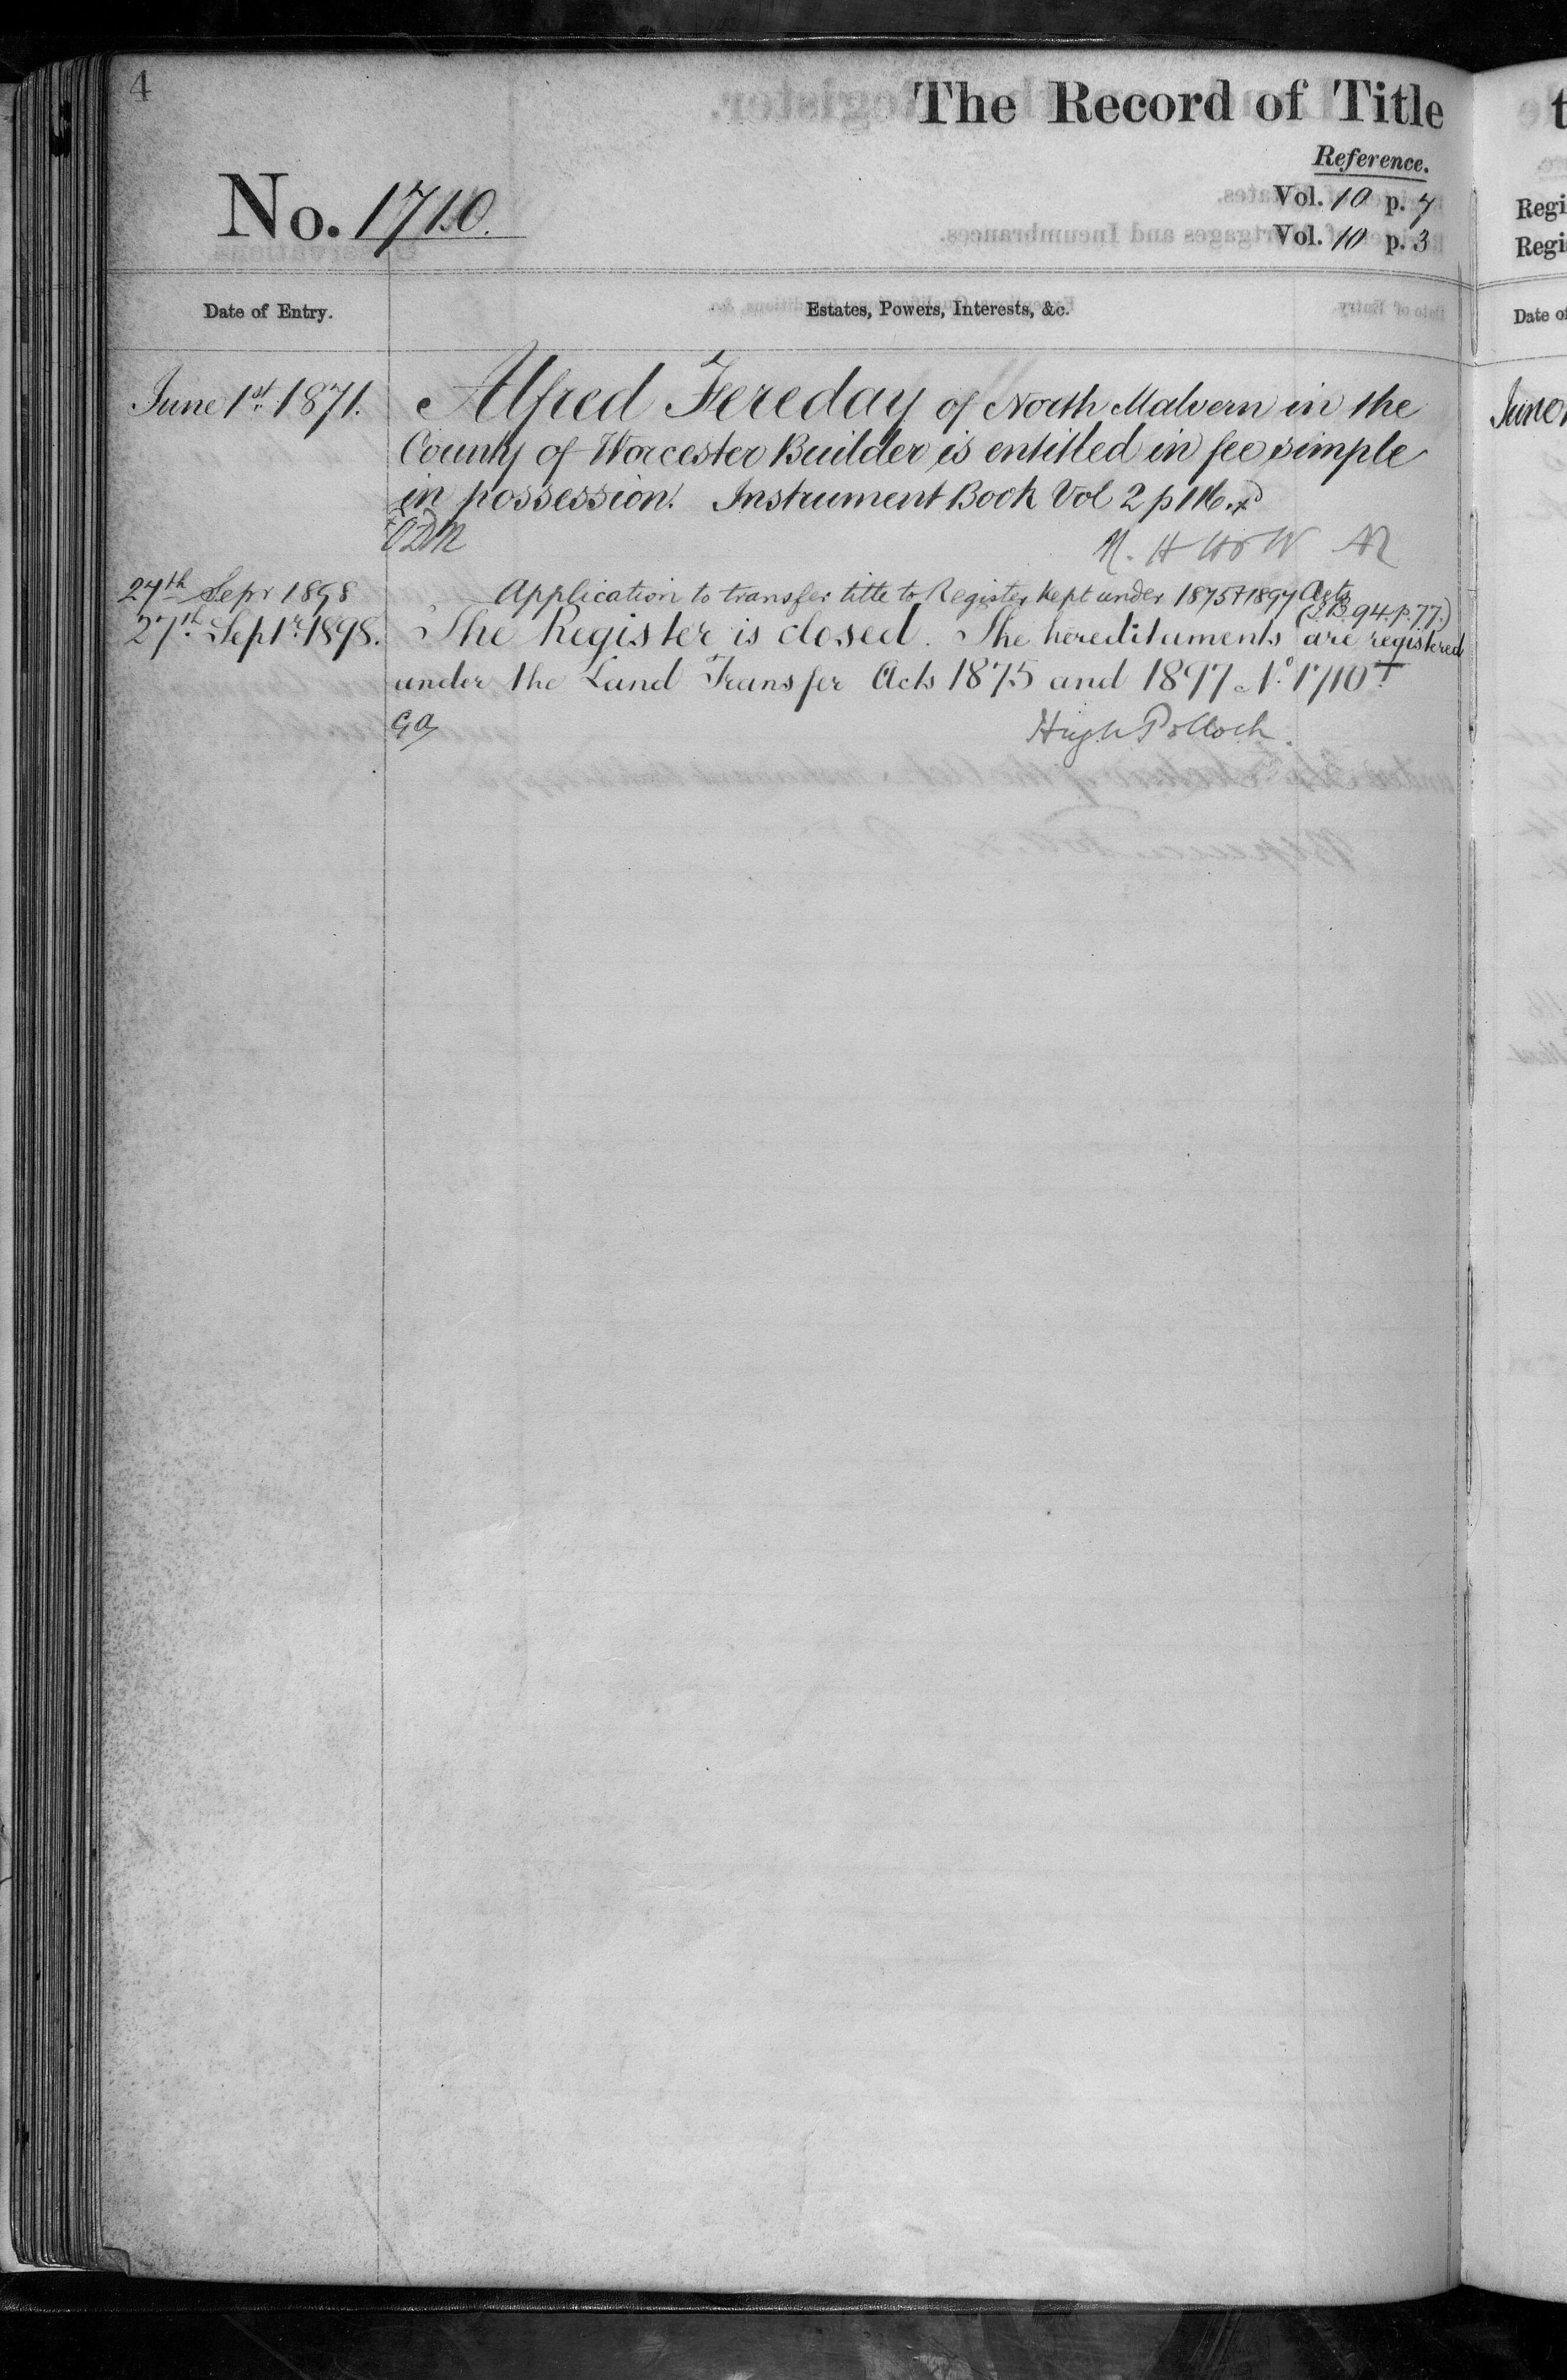 4
The Record of Title
Reference.
No. 1710.
Vol. 10 p. 7
Vol. 10 p. 3
Date of Entry.
Estates, Powers, Interests, &c.
June 1st. 1871.
Alfred Fereday of North Malvern in the
County of Worcester Builder is entitled in fee simple
in possession. Instrument Book Vol 2 p 116.
27th Sepr 1898
Application to transfer title to Register kept under 1875 & 1897 Acts
94. p. 77.)
27th. Septr. 1898.
The Register is closed. The hereditaments are registered
under the Land Transfer Acts 1875 and 1897 No. 1710
Hugh Pollock.
t
Regi
Regi
Date of
June